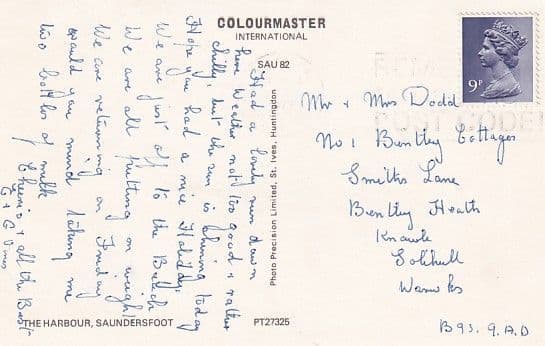 COLOURMASTER
INTERNATIONAL
SAU 82
Had a lovely run down
here Weather not too good & rather
chilly, but the sun is shining today
Hope you had a nice Holiday.
We are just off to the Beach
We are all putting on weight
We are returning on Friday
would you mind taking me
two bottles of milk
Cheerio & all the Best
Photo Precision Limited, St. Ives, Huntingdon
9P
POST CODE
Mr & Mrs Dodd
No 1 Bentley Cottages
Smiths Lane
Bentley Heath
Knowle
Solihull
Warwks
B93. 9.A.D
THE HARBOUR, SAUNDERSFOOT
PT27325